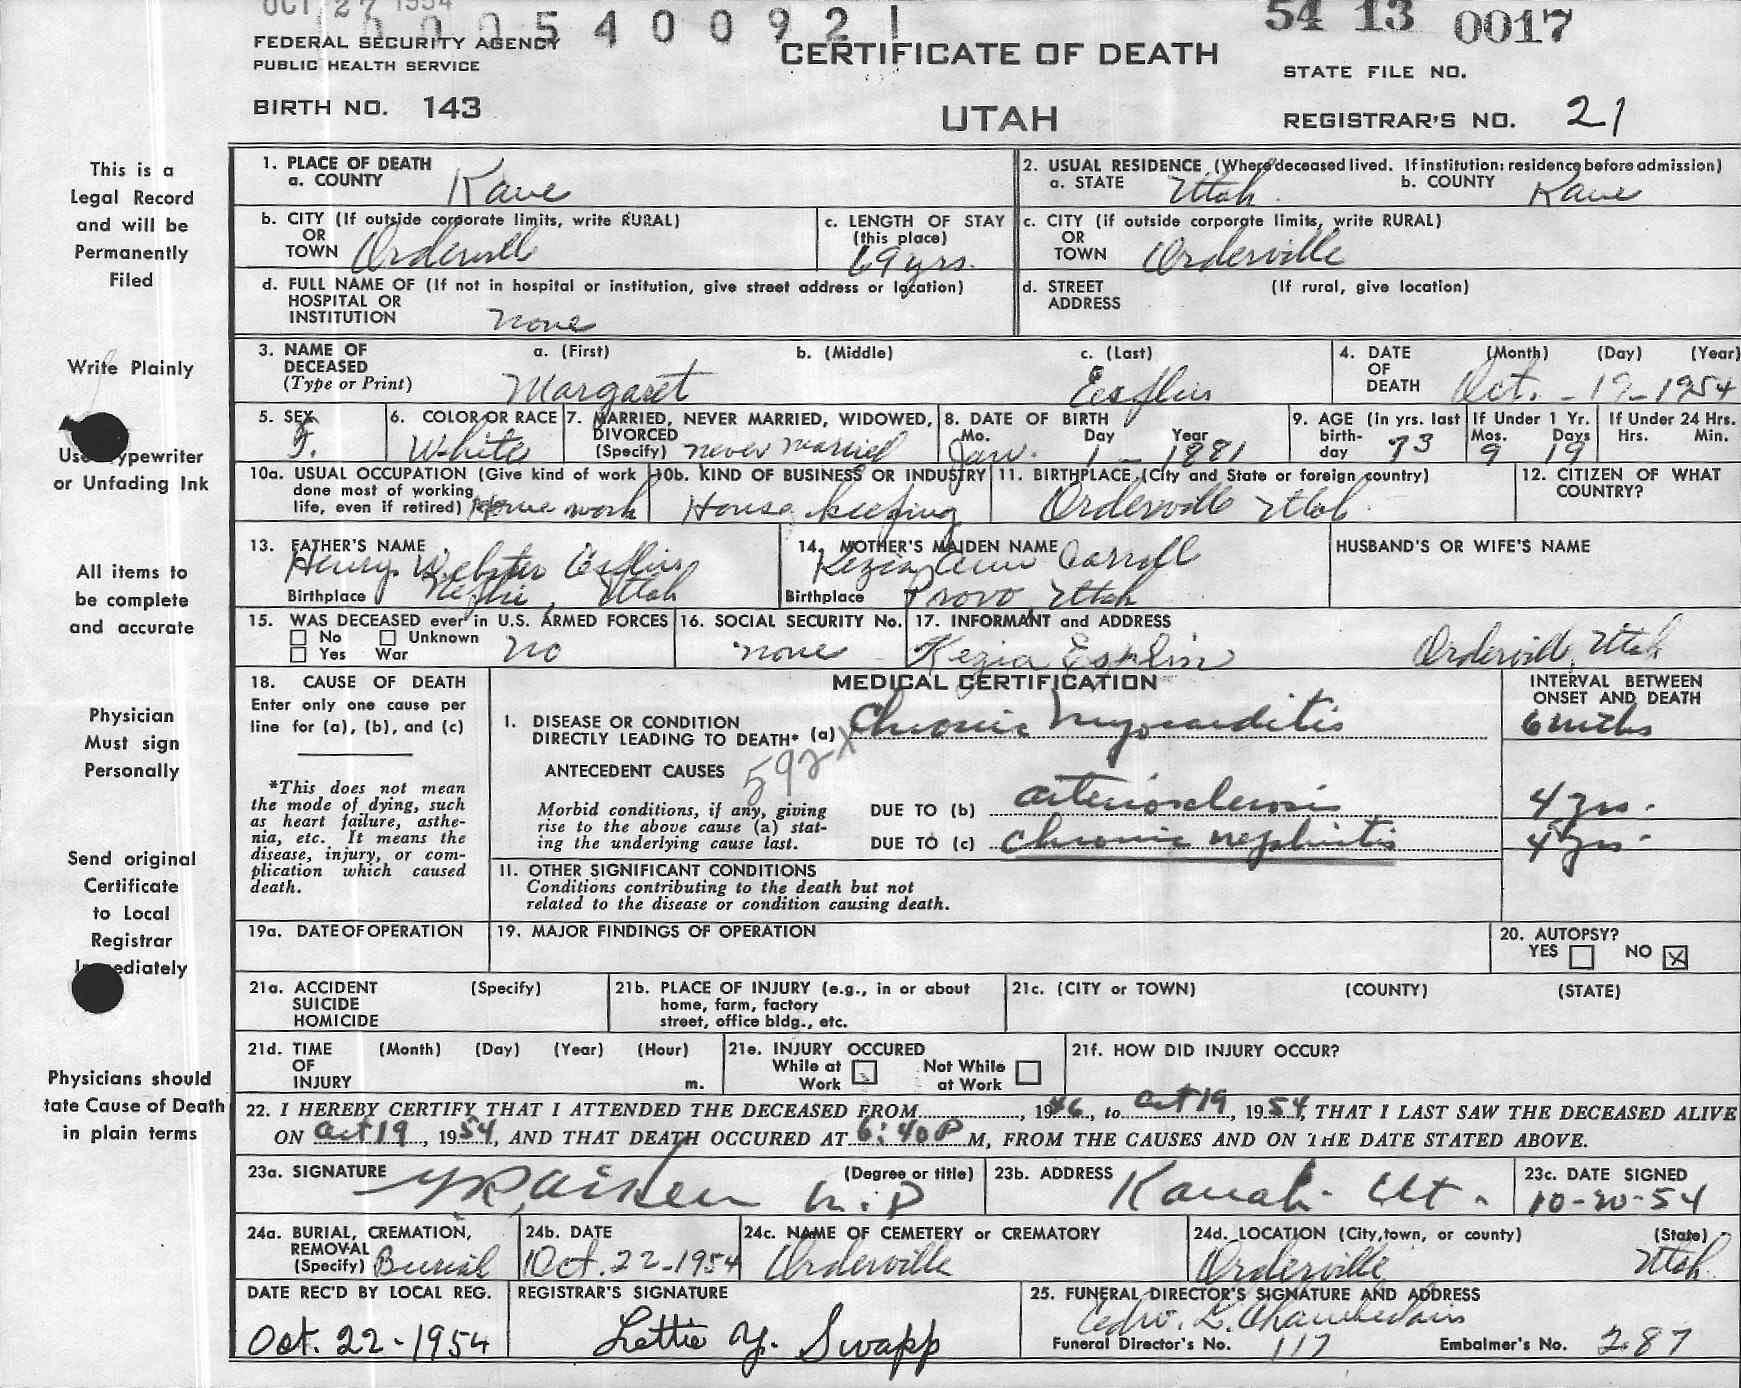 OCT 27 1954
0005400921
54 13 0017
FEDERAL SECURITY AGENCY
PUBLIC HEALTH SERVICE
CERTIFICATE OF DEATH
STATE FILE NO.
BIRTH NO. 143
UTAH
REGISTRAR'S NO. 21
This is a
Legal Record
and will be
Permanently
Filed
Write Plainly
Use Typewriter
or Unfading Ink
All items to
be complete
and accurate
Physician
Must sign
Personally
Send original
Certificate
to Local
Registrar
Immediately
Physicians should
tate Cause of Death
in plain terms
1. PLACE OF DEATH
a. COUNTY Kane
2. USUAL RESIDENCE (Where deceased lived. If institution: residence before admission)
a. STATE Utah b. COUNTY Kane
b. CITY (If outside corporate limits, write RURAL)
OR
TOWN Orderville
c. LENGTH OF STAY
(this place)
69 yrs.
c. CITY (if outside corporate limits, write RURAL)
OR
TOWN Orderville
d. FULL NAME OF (If not in hospital or institution, give street address or location)
HOSPITAL OR
INSTITUTION none
d. STREET (If rural, give location)
ADDRESS
3. NAME OF
DECEASED
(Type or Print)
a. (First) b. (Middle) c. (Last)
Margaret Esplin
4. DATE
OF
DEATH
(Month) (Day) (Year)
Oct. - 19 - 1954
5. SEX
F.
6. COLOR OR RACE
White
7. MARRIED, NEVER MARRIED, WIDOWED,
DIVORCED
(Specify) never married
8. DATE OF BIRTH
Mo. Day Year
Jan. 1 - 1881
9. AGE (in yrs. last
birth-
day 73
If Under 1 Yr.
Mos. Days
9 19
If Under 24 Hrs.
Hrs. Min.
10a. USUAL OCCUPATION (Give kind of work
done most of working
life, even if retired) Home work
10b. KIND OF BUSINESS OR INDUSTRY
House keeping
11. BIRTHPLACE (City and State or foreign country)
Orderville Utah
12. CITIZEN OF WHAT
COUNTRY?
13. FATHER'S NAME
Henry Webster Esplin
Birthplace Nephi, Utah
14. MOTHER'S MAIDEN NAME
Kezia Ann Carroll
Birthplace Provo Utah
HUSBAND'S OR WIFE'S NAME
15. WAS DECEASED ever in U.S. ARMED FORCES
No Unknown
Yes War
No
16. SOCIAL SECURITY No.
none
17. INFORMANT and ADDRESS
Kezia Esplin Orderville, Utah
18. CAUSE OF DEATH
Enter only one cause per
line for (a), (b), and (c)
*This does not mean
the mode of dying, such
as heart failure, asthe-
nia, etc. It means the
disease, injury, or com-
plication which caused
death.
MEDICAL CERTIFICATION
INTERVAL BETWEEN
ONSET AND DEATH
I. DISEASE OR CONDITION
DIRECTLY LEADING TO DEATH* (a) Chronic Myocarditis 6 mths
592X
ANTECEDENT CAUSES
Morbid conditions, if any, giving
rise to the above cause (a) stat-
ing the underlying cause last.
DUE TO (b) arteriosclerosis 4 yrs.
DUE TO (c) chronic nephritis 4 yrs.
II. OTHER SIGNIFICANT CONDITIONS
Conditions contributing to the death but not
related to the disease or condition causing death.
19a. DATE OF OPERATION
19. MAJOR FINDINGS OF OPERATION
20. AUTOPSY?
YES NO X
21a. ACCIDENT (Specify)
SUICIDE
HOMICIDE
21b. PLACE OF INJURY (e.g., in or about
home, farm, factory
street, office bldg., etc.
21c. (CITY or TOWN) (COUNTY) (STATE)
21d. TIME (Month) (Day) (Year) (Hour)
OF
INJURY m.
21e. INJURY OCCURED
While at Not While
Work at Work
21f. HOW DID INJURY OCCUR?
22. I HEREBY CERTIFY THAT I ATTENDED THE DECEASED FROM, 1946, to Oct 19, 1954, THAT I LAST SAW THE DECEASED ALIVE
ON Oct 19, 1954, AND THAT DEATH OCCURED AT 6:40 P M, FROM THE CAUSES AND ON THE DATE STATED ABOVE.
23a. SIGNATURE (Degree or title)
Aiken M.D
23b. ADDRESS
Kanab. Ut.
23c. DATE SIGNED
10-20-54
24a. BURIAL, CREMATION,
REMOVAL
(Specify) Burial
24b. DATE
Oct. 22-1954
24c. NAME OF CEMETERY or CREMATORY
Orderville
24d. LOCATION (City, town, or county) (State)
Orderville Utah
DATE REC'D BY LOCAL REG.
Oct. 22-1954
REGISTRAR'S SIGNATURE
Lettie Y. Swapp
25. FUNERAL DIRECTOR'S SIGNATURE AND ADDRESS
L. Chamberlain
Funeral Director's No. 117 Embalmer's No. 287